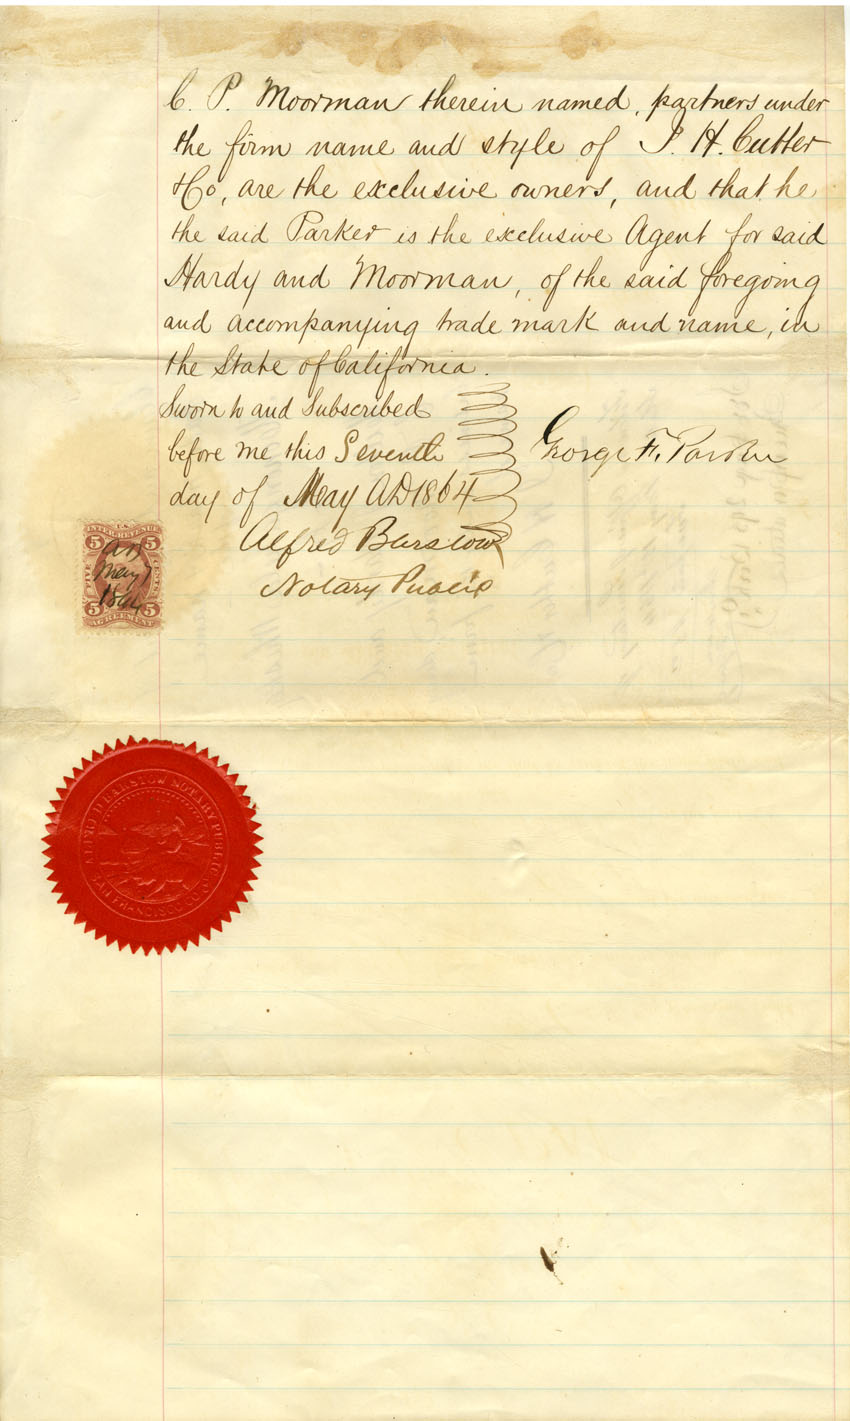 C. P. Moorman therein named, partners under
the firm name and style of J. H. Cutter
& Co, are the exclusive owners, and that he
the said Parker is the exclusive Agent for said
Hardy and Moorman, of the said foregoing
and accompanying trade mark and name, in
the State of California.
Sworn to and Subscribed
before me this Seventh
day of May AD 1864
George F. Parker
Alfred Barstow
Notary Public
U.S.
INTER. REVENUE
5 5
FIVE CENTS
AB
May 7
1864
5 5
AGREEMENT
ALFRED BARSTOW NOTARY PUBLIC
SAN FRANCISCO CO.